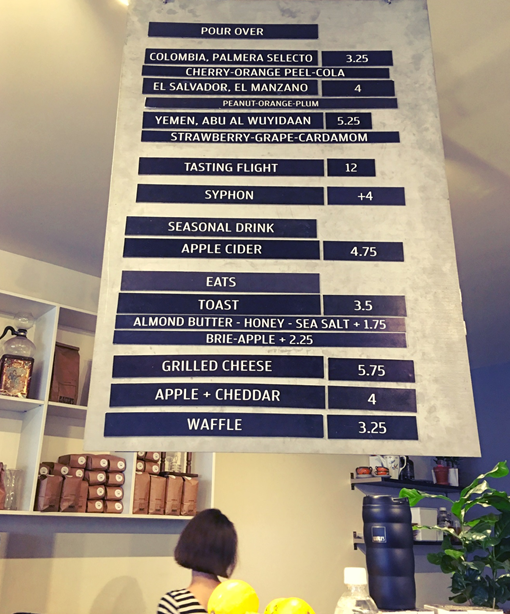 POUR OVER
COLOMBIA, PALMERA SELECTO 3.25
CHERRY-ORANGE PEEL-COLA
EL SALVADOR, EL MANZANO 4
PEANUT-ORANGE-PLUM
YEMEN, ABU AL WUYIDAAN 5.25
STRAWBERRY-GRAPE-CARDAMOM
TASTING FLIGHT 12
SYPHON +4
SEASONAL DRINK
APPLE CIDER 4.75
EATS
TOAST 3.5
ALMOND BUTTER - HONEY - SEA SALT + 1.75
BRIE-APPLE + 2.25
GRILLED CHEESE 5.75
APPLE + CHEDDAR 4
WAFFLE 3.25